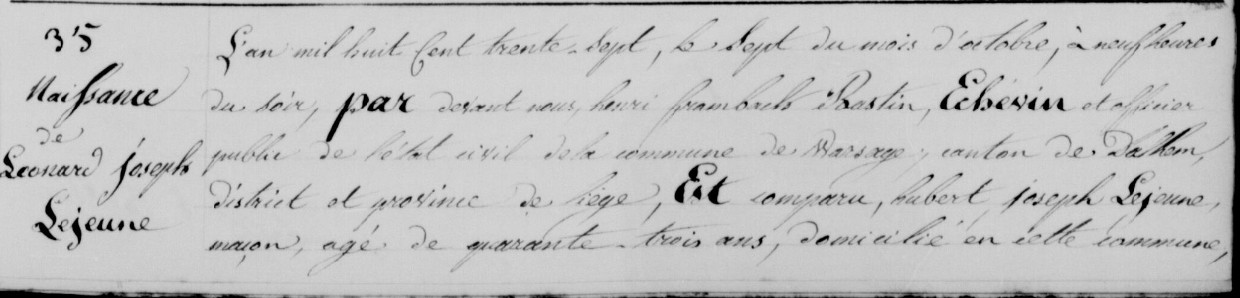 35
Naissance
de
Leonard joseph
Lejeune
L'an mil huit Cent trente-sept, le sept du mois d'octobre, à neuf heures
du soir, par devant nous, henri Bastin, Echevin et officier
public de l'état civil de la commune de Warsage, canton de Dalhem,
district et province de Liége, Est comparu, hubert joseph Lejeune,
maçon, agé de quarante-trois ans, domicilié en cette commune,